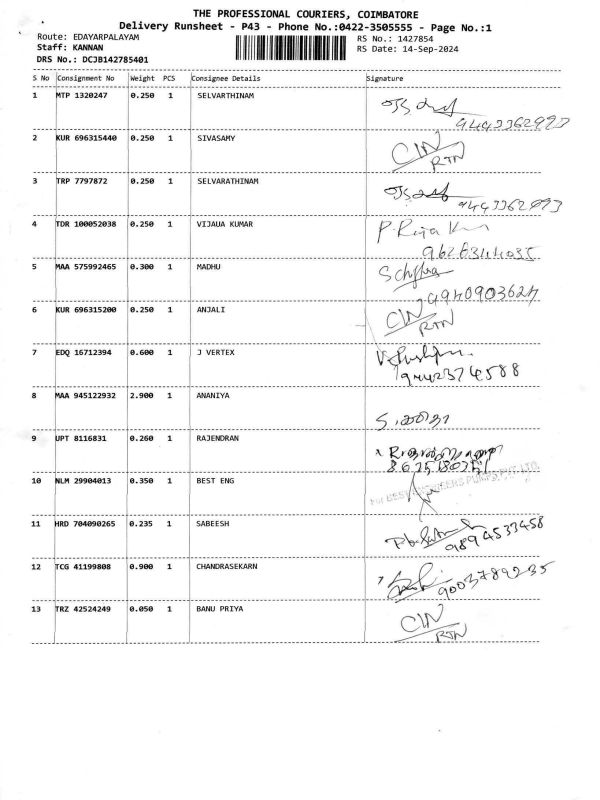 THE PROFESSIONAL COURIERS, COIMBATORE
Delivery Runsheet - P43 - Phone No.:0422-3505555 - Page No.:1
Route: EDAYARPALAYAM RS No.: 1427854
Staff: KANNAN RS Date: 14-Sep-2024
DRS No.: DCJB142785401
S No Consignment No Weight PCS Consignee Details Signature
1 MTP 1320247 0.250 1 SELVARTHINAM
9443362993
2 KUR 696315440 0.250 1 SIVASAMY CIN/
RTN
3 TRP 7797872 0.250 1 SELVARATHINAM
9443362993
4 TDR 100052038 0.250 1 VIJAUA KUMAR
5 MAA 575992465 0.300 1 MADHU
9940903624
6 KUR 696315200 0.250 1 ANJALI CIN/
RTN
7 EDQ 16712394 0.600 1 J VERTEX
9442374588
8 MAA 945122932 2.900 1 ANANIYA
9 UPT 8116831 0.260 1 RAJENDRAN
10 NLM 29904013 0.350 1 BEST ENG
For BEST ENGINEERS PUMPS PVT LTD
11 HRD 704090265 0.235 1 SABEESH
9894533458
12 TCG 41199808 0.900 1 CHANDRASEKARN
9003789235
13 TRZ 42524249 0.050 1 BANU PRIYA CIN/
RTN